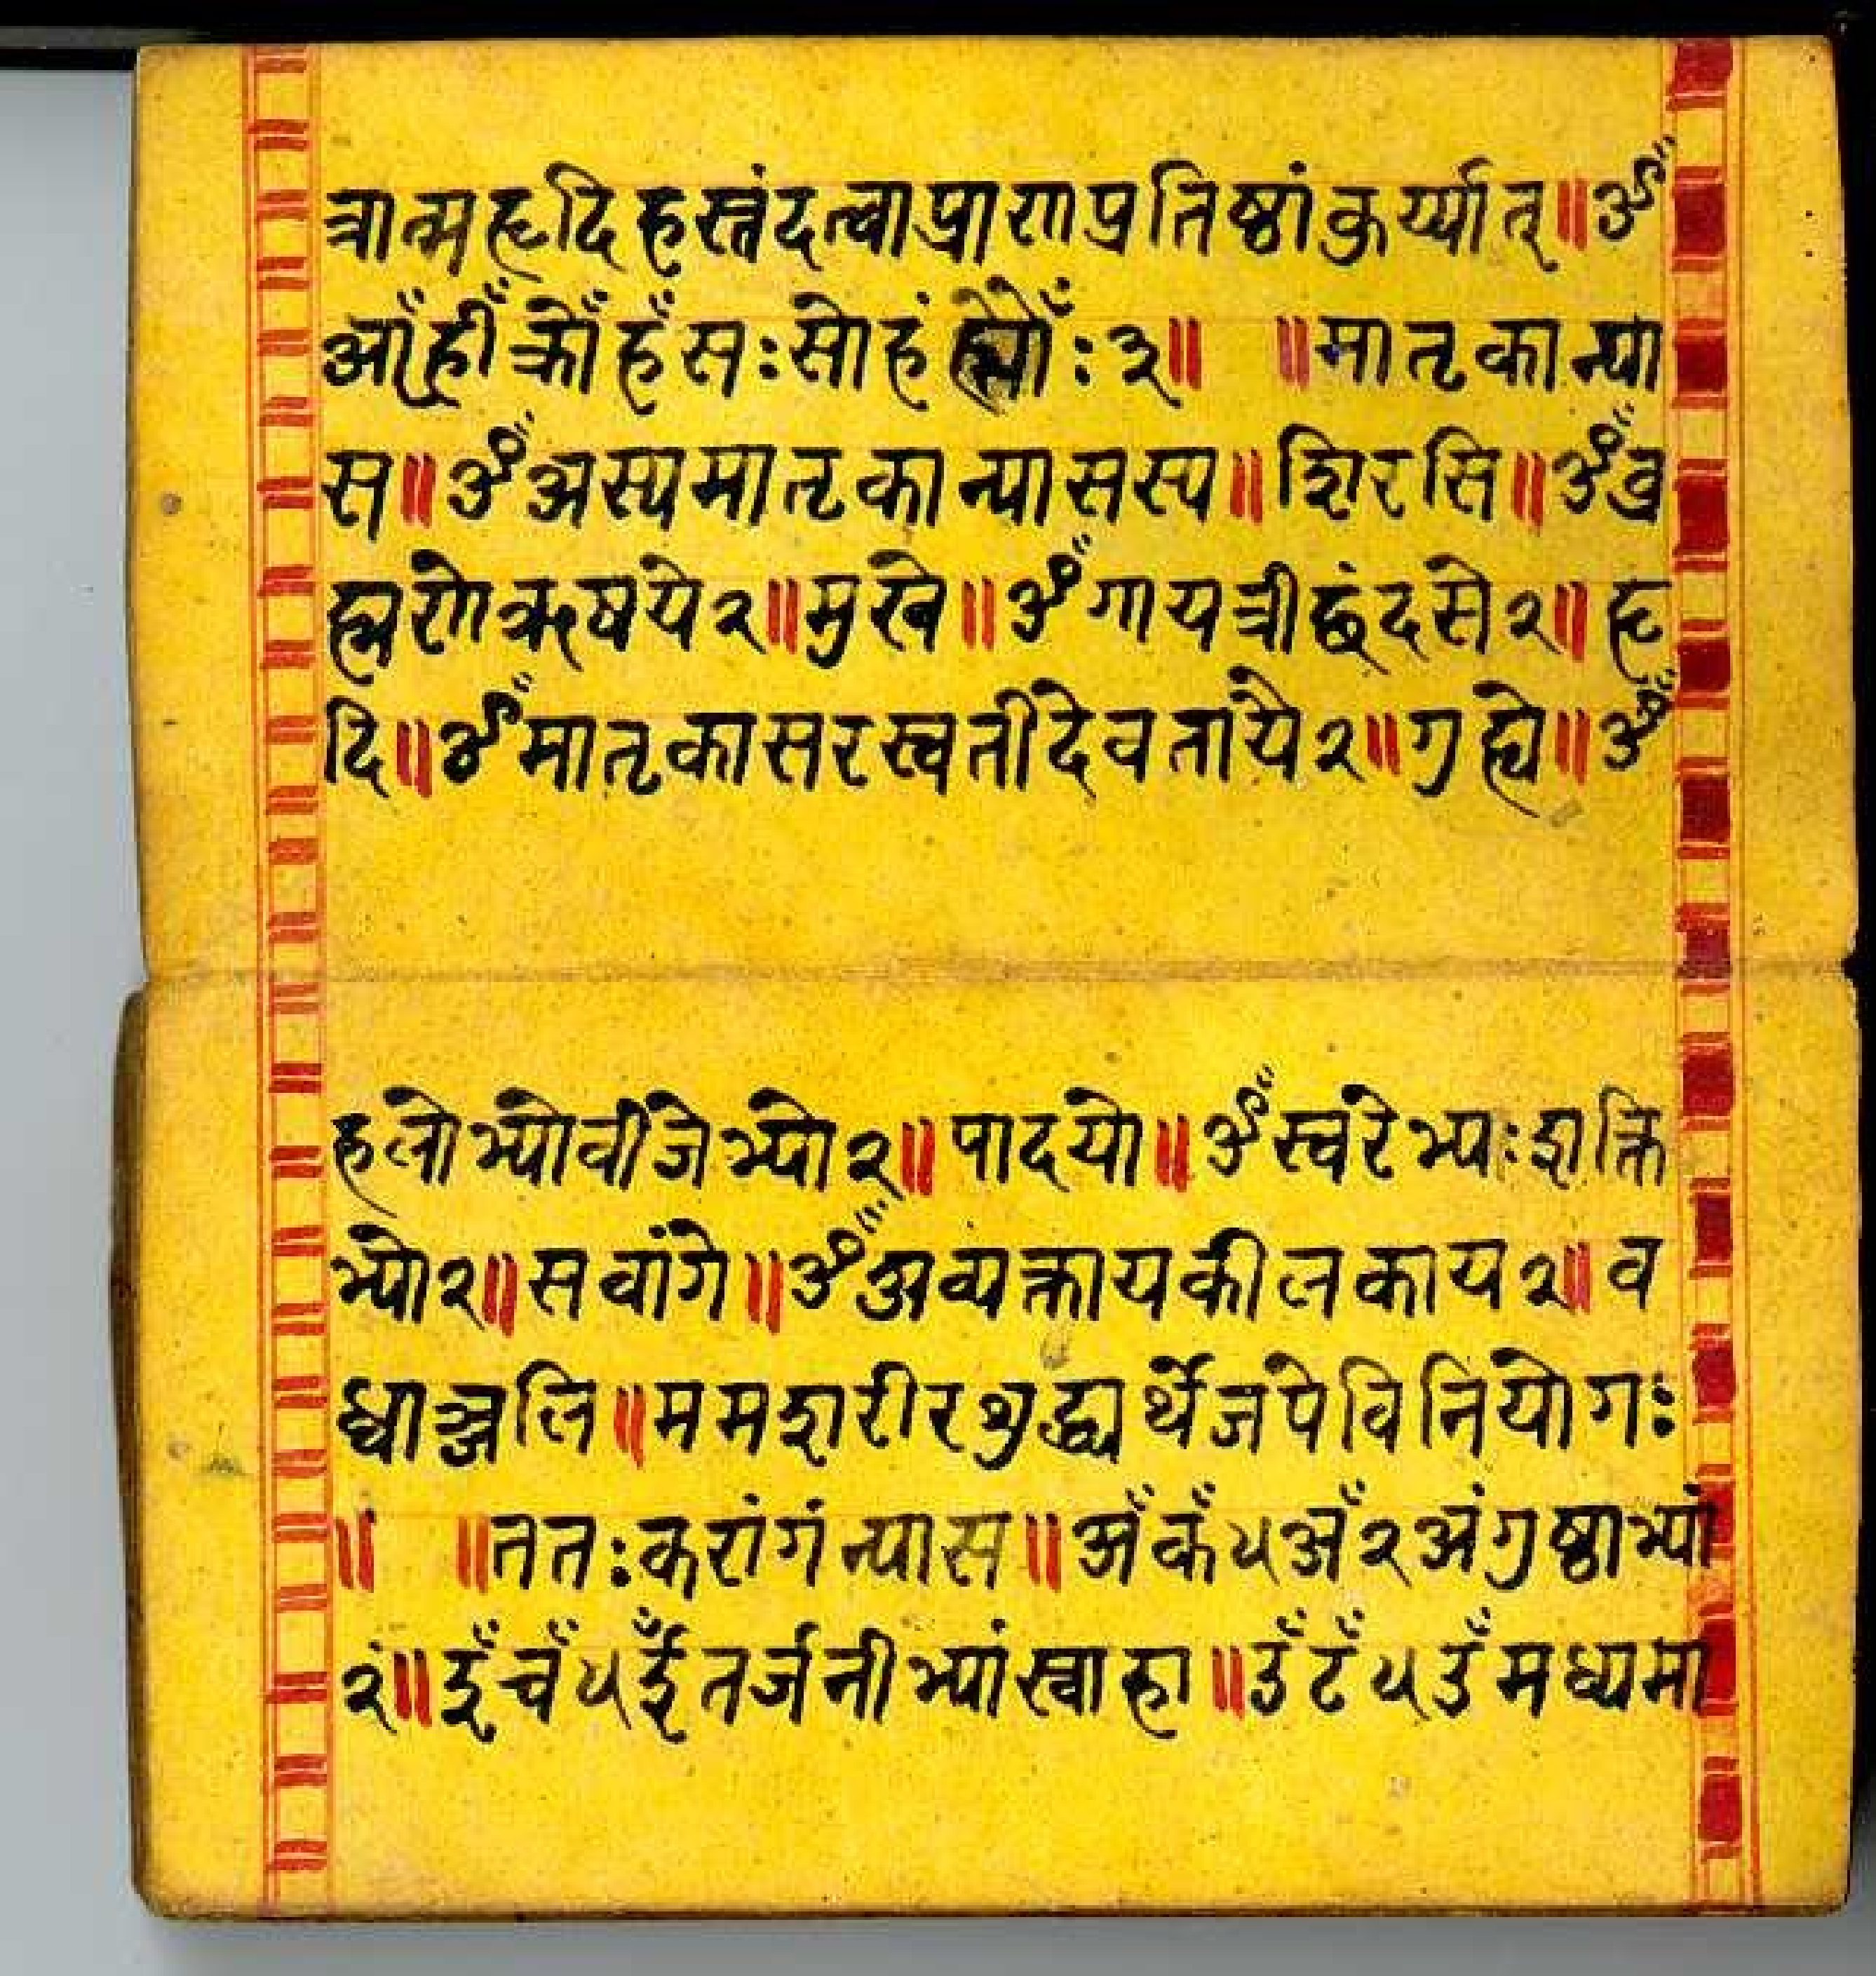 त्रात्महृदि हस्तंदत्वाप्राणप्रतिष्ठांकुर्य्यात्॥ॐ
आँह्रीँ क्रोँ हँ सः सोहं : ३॥ ॥मातृकान्या
स॥ॐ अस्यमातृकान्यासस्य॥शिरसि॥ॐ व्र
ह्मणेऋषये२॥मुखे॥ॐ गायत्रीछंदसे२॥हृ
दि॥ॐ मातृकासरस्वतीदेवतायै२॥गुह्ये॥ॐ
हलोभ्योवीजेभ्यो२॥पादयो॥ॐ स्वरेभ्यःशक्ति
भ्यो२॥सर्वांगे॥ॐ अव्यक्तायकीलकाय२॥व
ध्वाञ्जलि॥ममशरीरशुद्ध्यर्थेजपेविनियोगः
॥ ॥ततःकरांगंन्यास॥अँ कँ ५ अँ २ अंगुष्ठाभ्यां
२ं॥इँ चँ ५ ईँ तर्जनीभ्यांस्वाहा॥उँ टँ ५ उँ मध्यमा